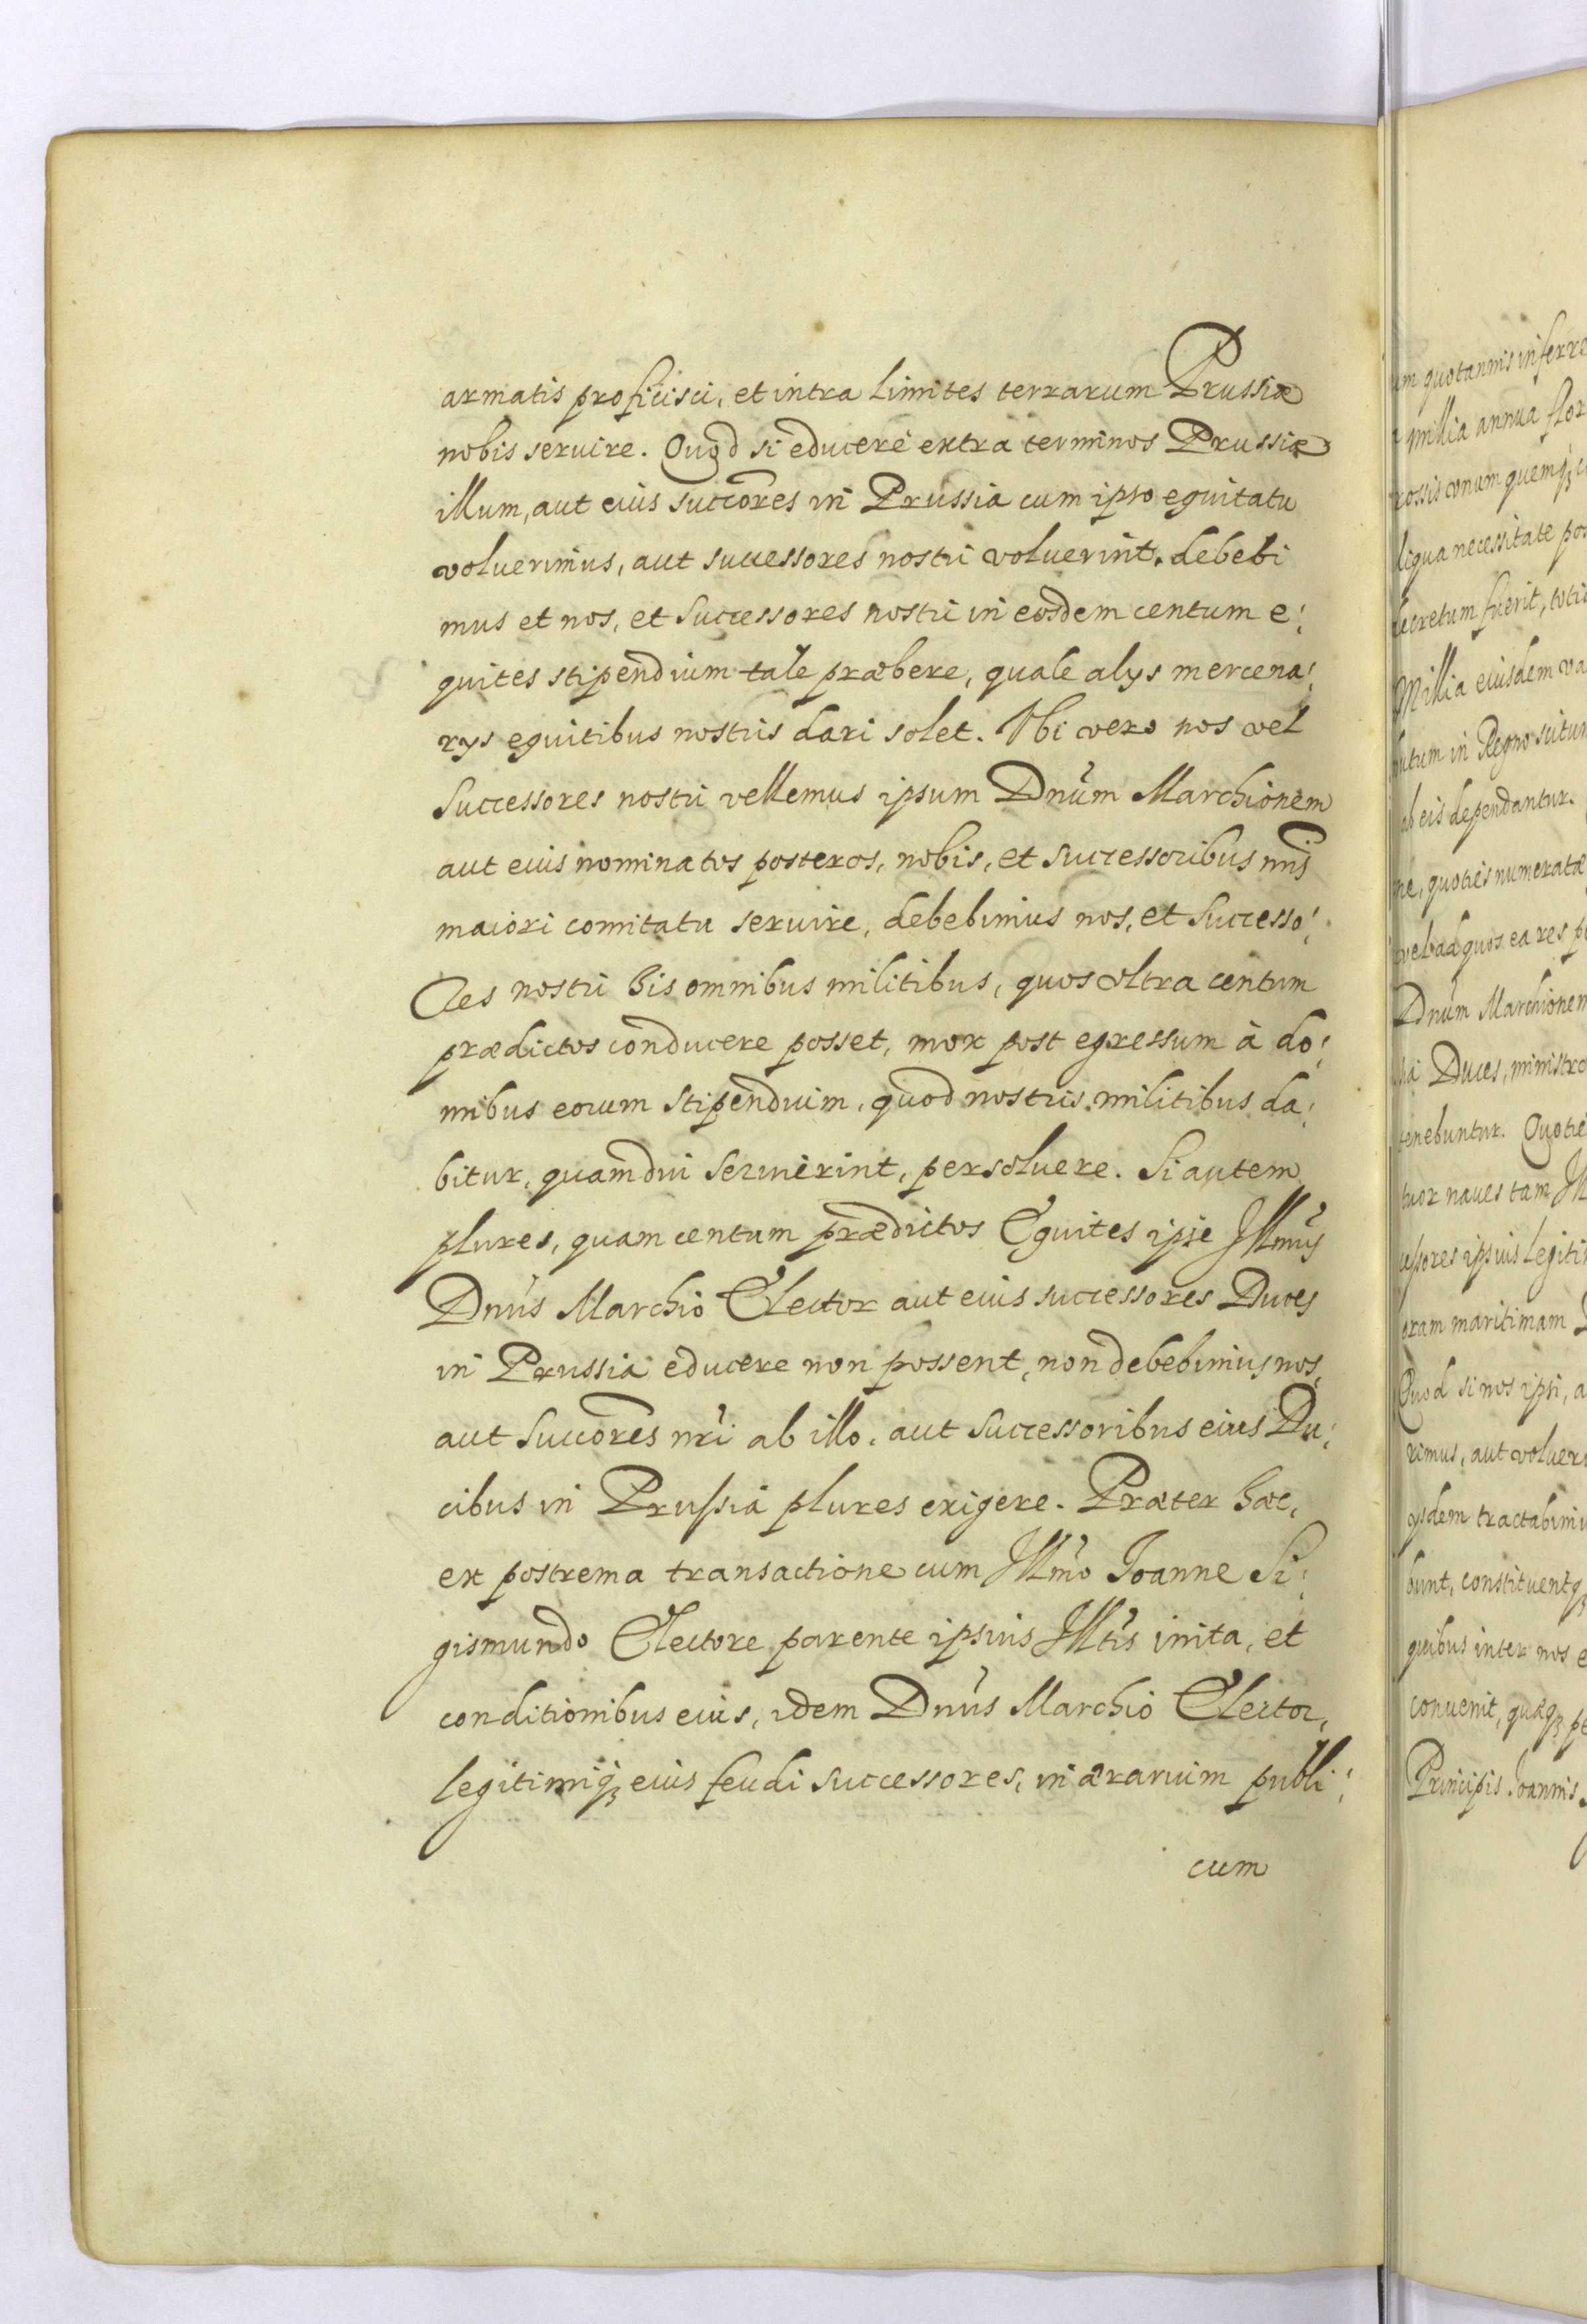 armatis proficisci, et intra limites terrarum Prussiæ
nobis seruire. Quod si educere extra terminos Prussiæ
illum, aut eius succores in Prussia cum ipso equitatu
voluerimus, aut successores nostri voluerint, debebi
mus et nos, et Successores nostri in eosdem centum e:
quites stipendium tale præbere, quale alys mercena:
rys equitibus nostris dari solet. Vbi vero nos vel
Successores nostri vellemus ipsum Dnum Marchionem
aut eius nominatos posteros, nobis, et Successoribus nris
maiori comitatu seruire, debebimus nos, et Successo:
res nostri his omnibus militibus, quos vltra centum
prædictos conducere posset, mox post egressum à do:
mibus eorum Stipendium, quod nostris militibus da:
bitur, quamdiu Seruierint, persoluere. Si autem
plures, quam centum prædictos Equites ipse Illmus
Dnus Marchio Elector aut eius successores Duces
in Prussia educere non possent, non debebimus nos,
aut Succores nri ab illo, aut Successoribus eius Du:
cibus in Prussia plures exigere. Præter hæc,
ex postrema transactione cum Illmo Joanne Si:
gismundo Electore parente ipsius Illtis inita, et
conditionibus eius, idem Dnus Marchio Elector,
legitimiq3 eius feudi successores, in ærarium publi:
cum
um quotannis inferre
millia annua flor
rossis vnum quemq3
liqua necessitate pos
decretum fuerit, toti
Millia eiusdem va
in Regno scitum
ab eis dependantur.
ne, quoties numeratæ
vel ad quos ea res p
Dnum Marchionem
Duces, ministro
tenebuntur. Quotie
tuor naues tam Ill
cessores ipsius legiti
oram maritimam
Quod si nos ipsi, a
rimus, aut voluer
ysdem tractabimu
bunt, constituentq3
quibus inter nos e
conuenit, quæq3 pe
Principis Joannis